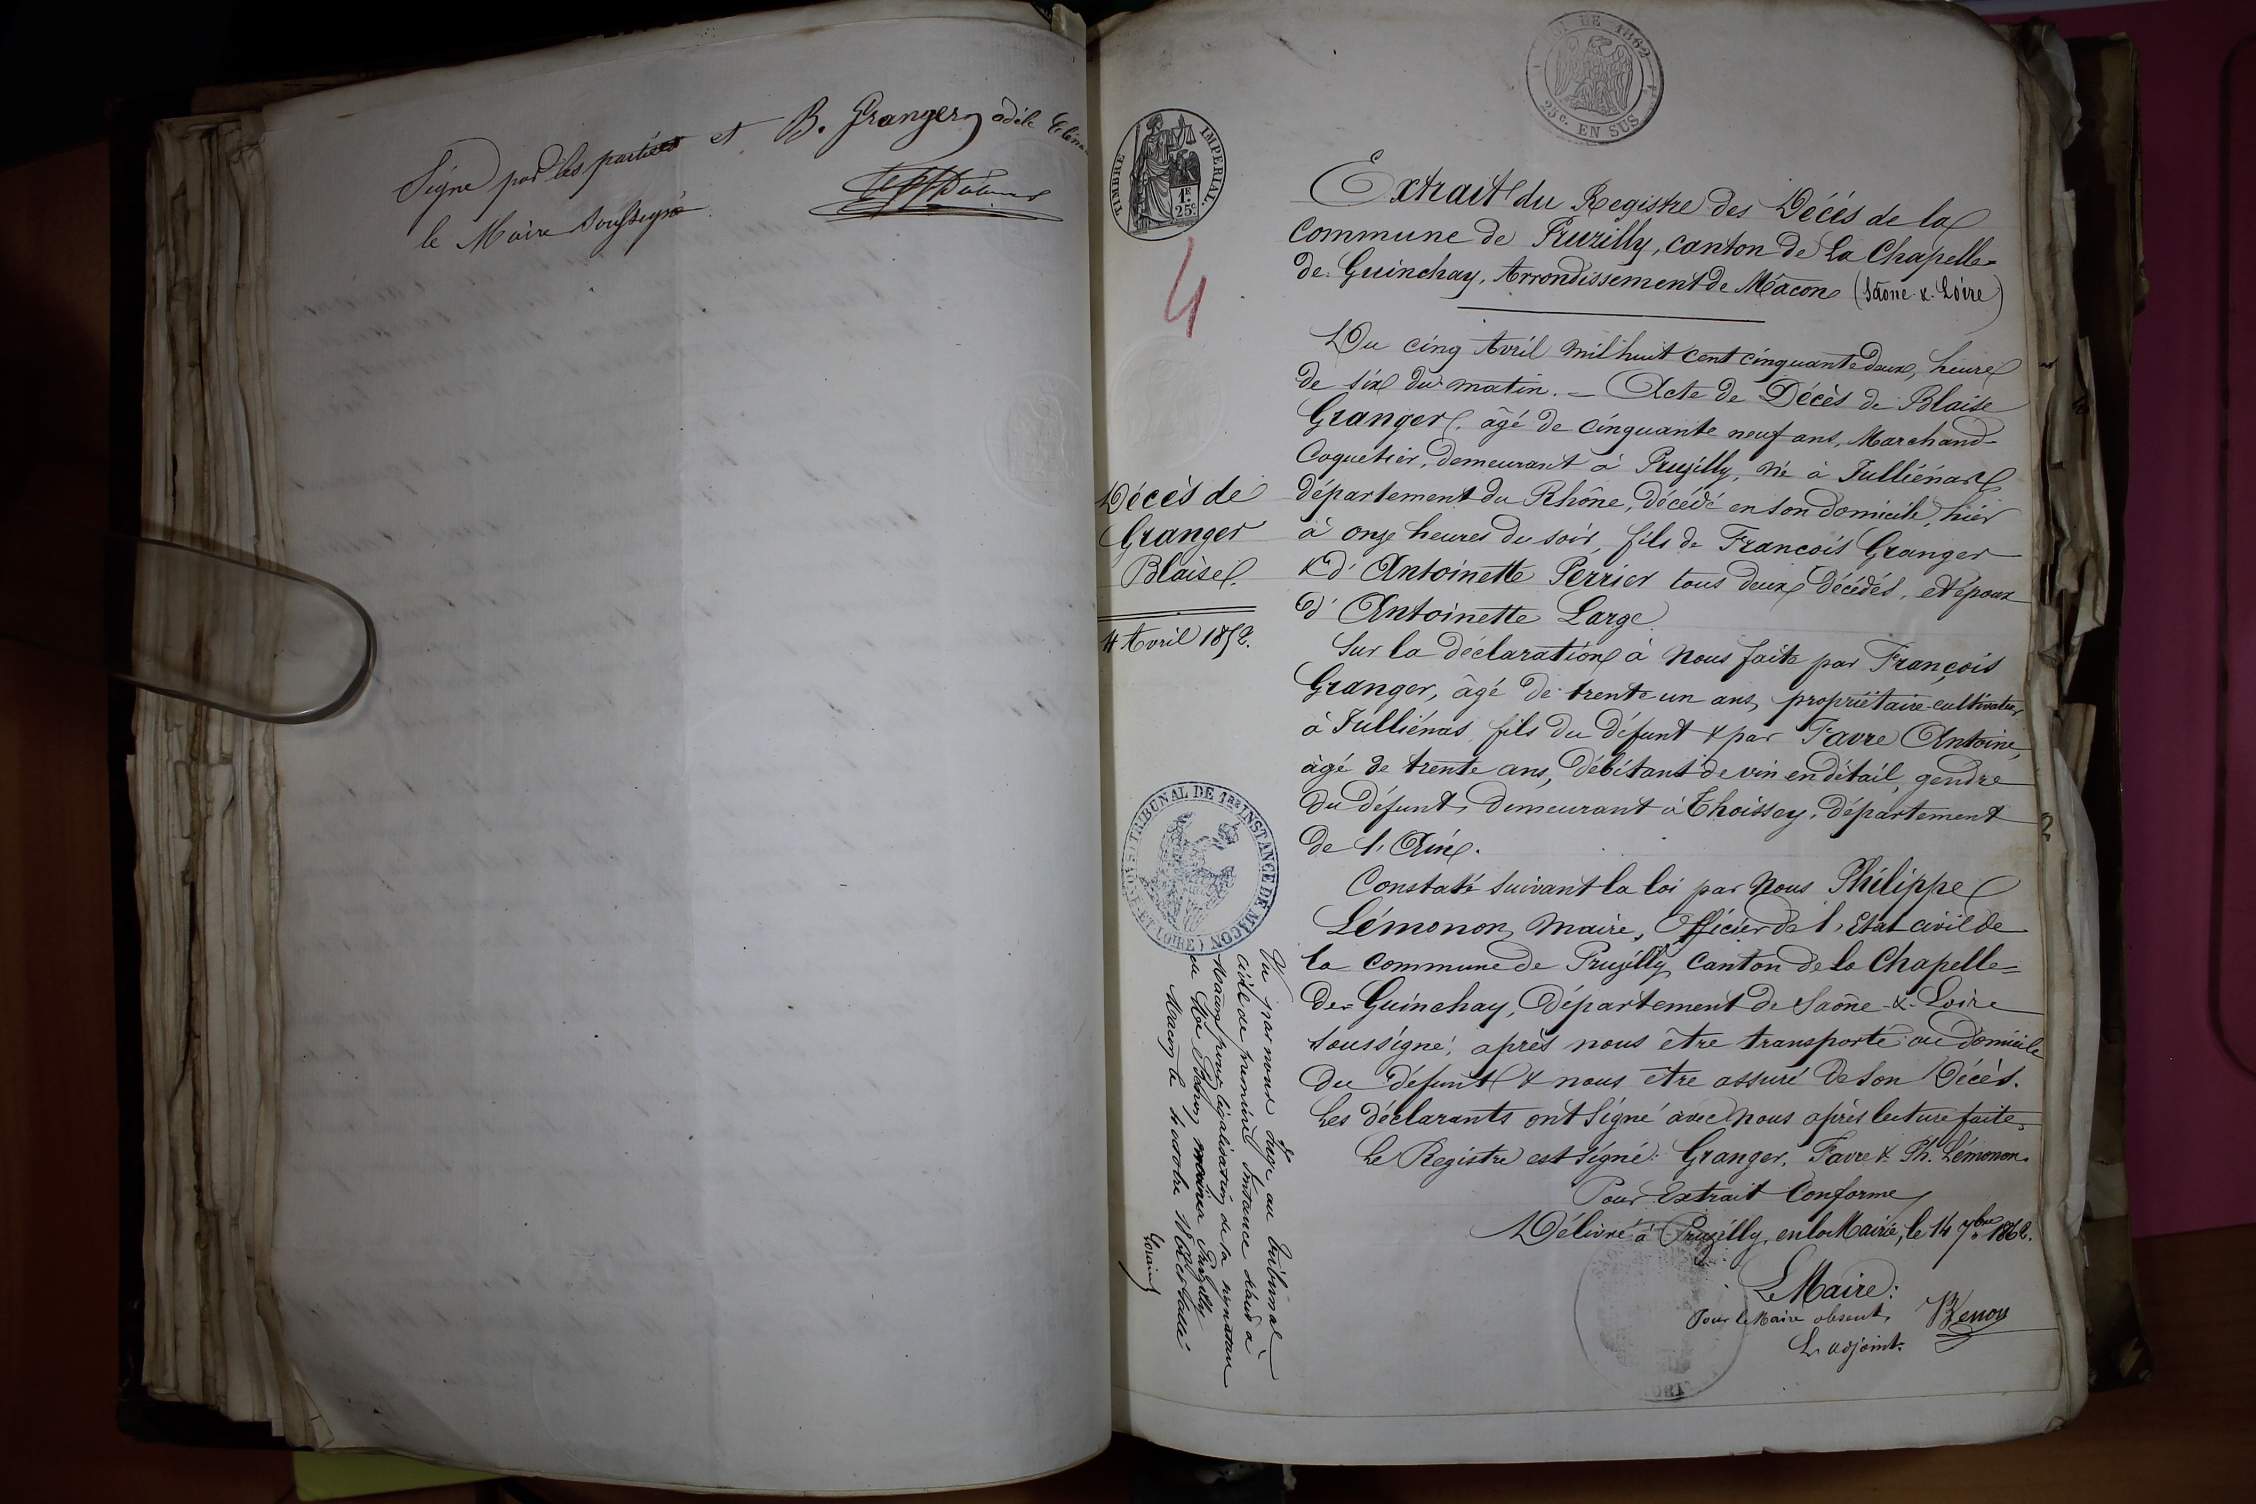 Signé par les parties et B. Granger adèle
le Maire soussigné
TIMBRE IMPERIAL
1F. 25c.
DE 1862
25c. EN SUS
4
Extrait du Registre des Décès de la
Commune de Pruzilly, canton de la Chapelle-
de-Guinchay, Arrondissement de Mâcon (Saône-&-Loire)
Du cinq Avril mil huit cent cinquante deux, heure
de six du matin. — Acte de Décès de Blaise
Granger, âgé de cinquante neuf ans, Marchand-
Coquetier, demeurant à Pruzilly, né à Julliénas,
département du Rhône, décédé en son domicile, hier
à onze heures du soir, fils de François Granger
& d'Antoinette Perrier tous deux décédés, et époux
d'Antoinette Large.
Sur la déclaration à nous faite par François
Granger, âgé de trente un ans, propriétaire-cultivateur
à Julliénas, fils du défunt & par Favre Antoine,
âgé de trente ans, débitant de vin en détail, gendre
du défunt, demeurant à Thoissey, département
de l'Ain.
Constaté suivant la loi par nous Philippe
Lémonon, maire, Officier de l'Etat civil de
la commune de Pruzilly, Canton de la Chapelle-
de-Guinchay, Département de Saône-&-Loire
soussigné, après nous être transporté au domicile
du défunt & nous être assuré de son Décès.
Les déclarants ont signé avec nous après lecture faite.
Le Registre est signé: Granger, Favre & Ph. Lémonon.
Pour Extrait Conforme,
Délivré à Pruzilly, en la Mairie, le 14 7bre 1862.
Le Maire:
Pour le Maire absent,
L'adjoint.
Décès de
Granger
Blaise.
4 Avril 1852.
TRIBUNAL DE 1ERE INSTANCE DE MACON (SAONE-ET-LOIRE)
Vu par nous Juge au tribunal
civil de première Instance séant à
Macon pour légalisation de la signature
de Mr
Macon le